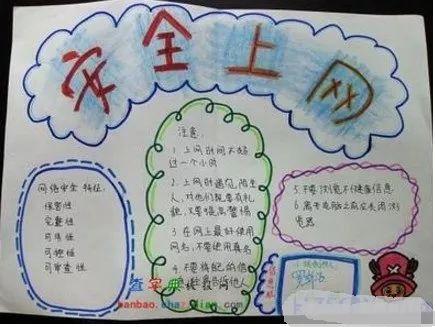 安全上网
网络安全 特征:
保密性
完整性
可用性
可控性
可审查性
注意:
1. 上网时间不超
过一个小时
2. 上网时遇见陌生
人，对他们既要有礼
貌，又要提高警惕
3. 在网上最好使用
网名，不要使用真名
4. 不要将配的信
5. 不要浏览不健康信息
6. 离开电脑之前应关闭浏
览器
查字典
banbao.chazidian.com